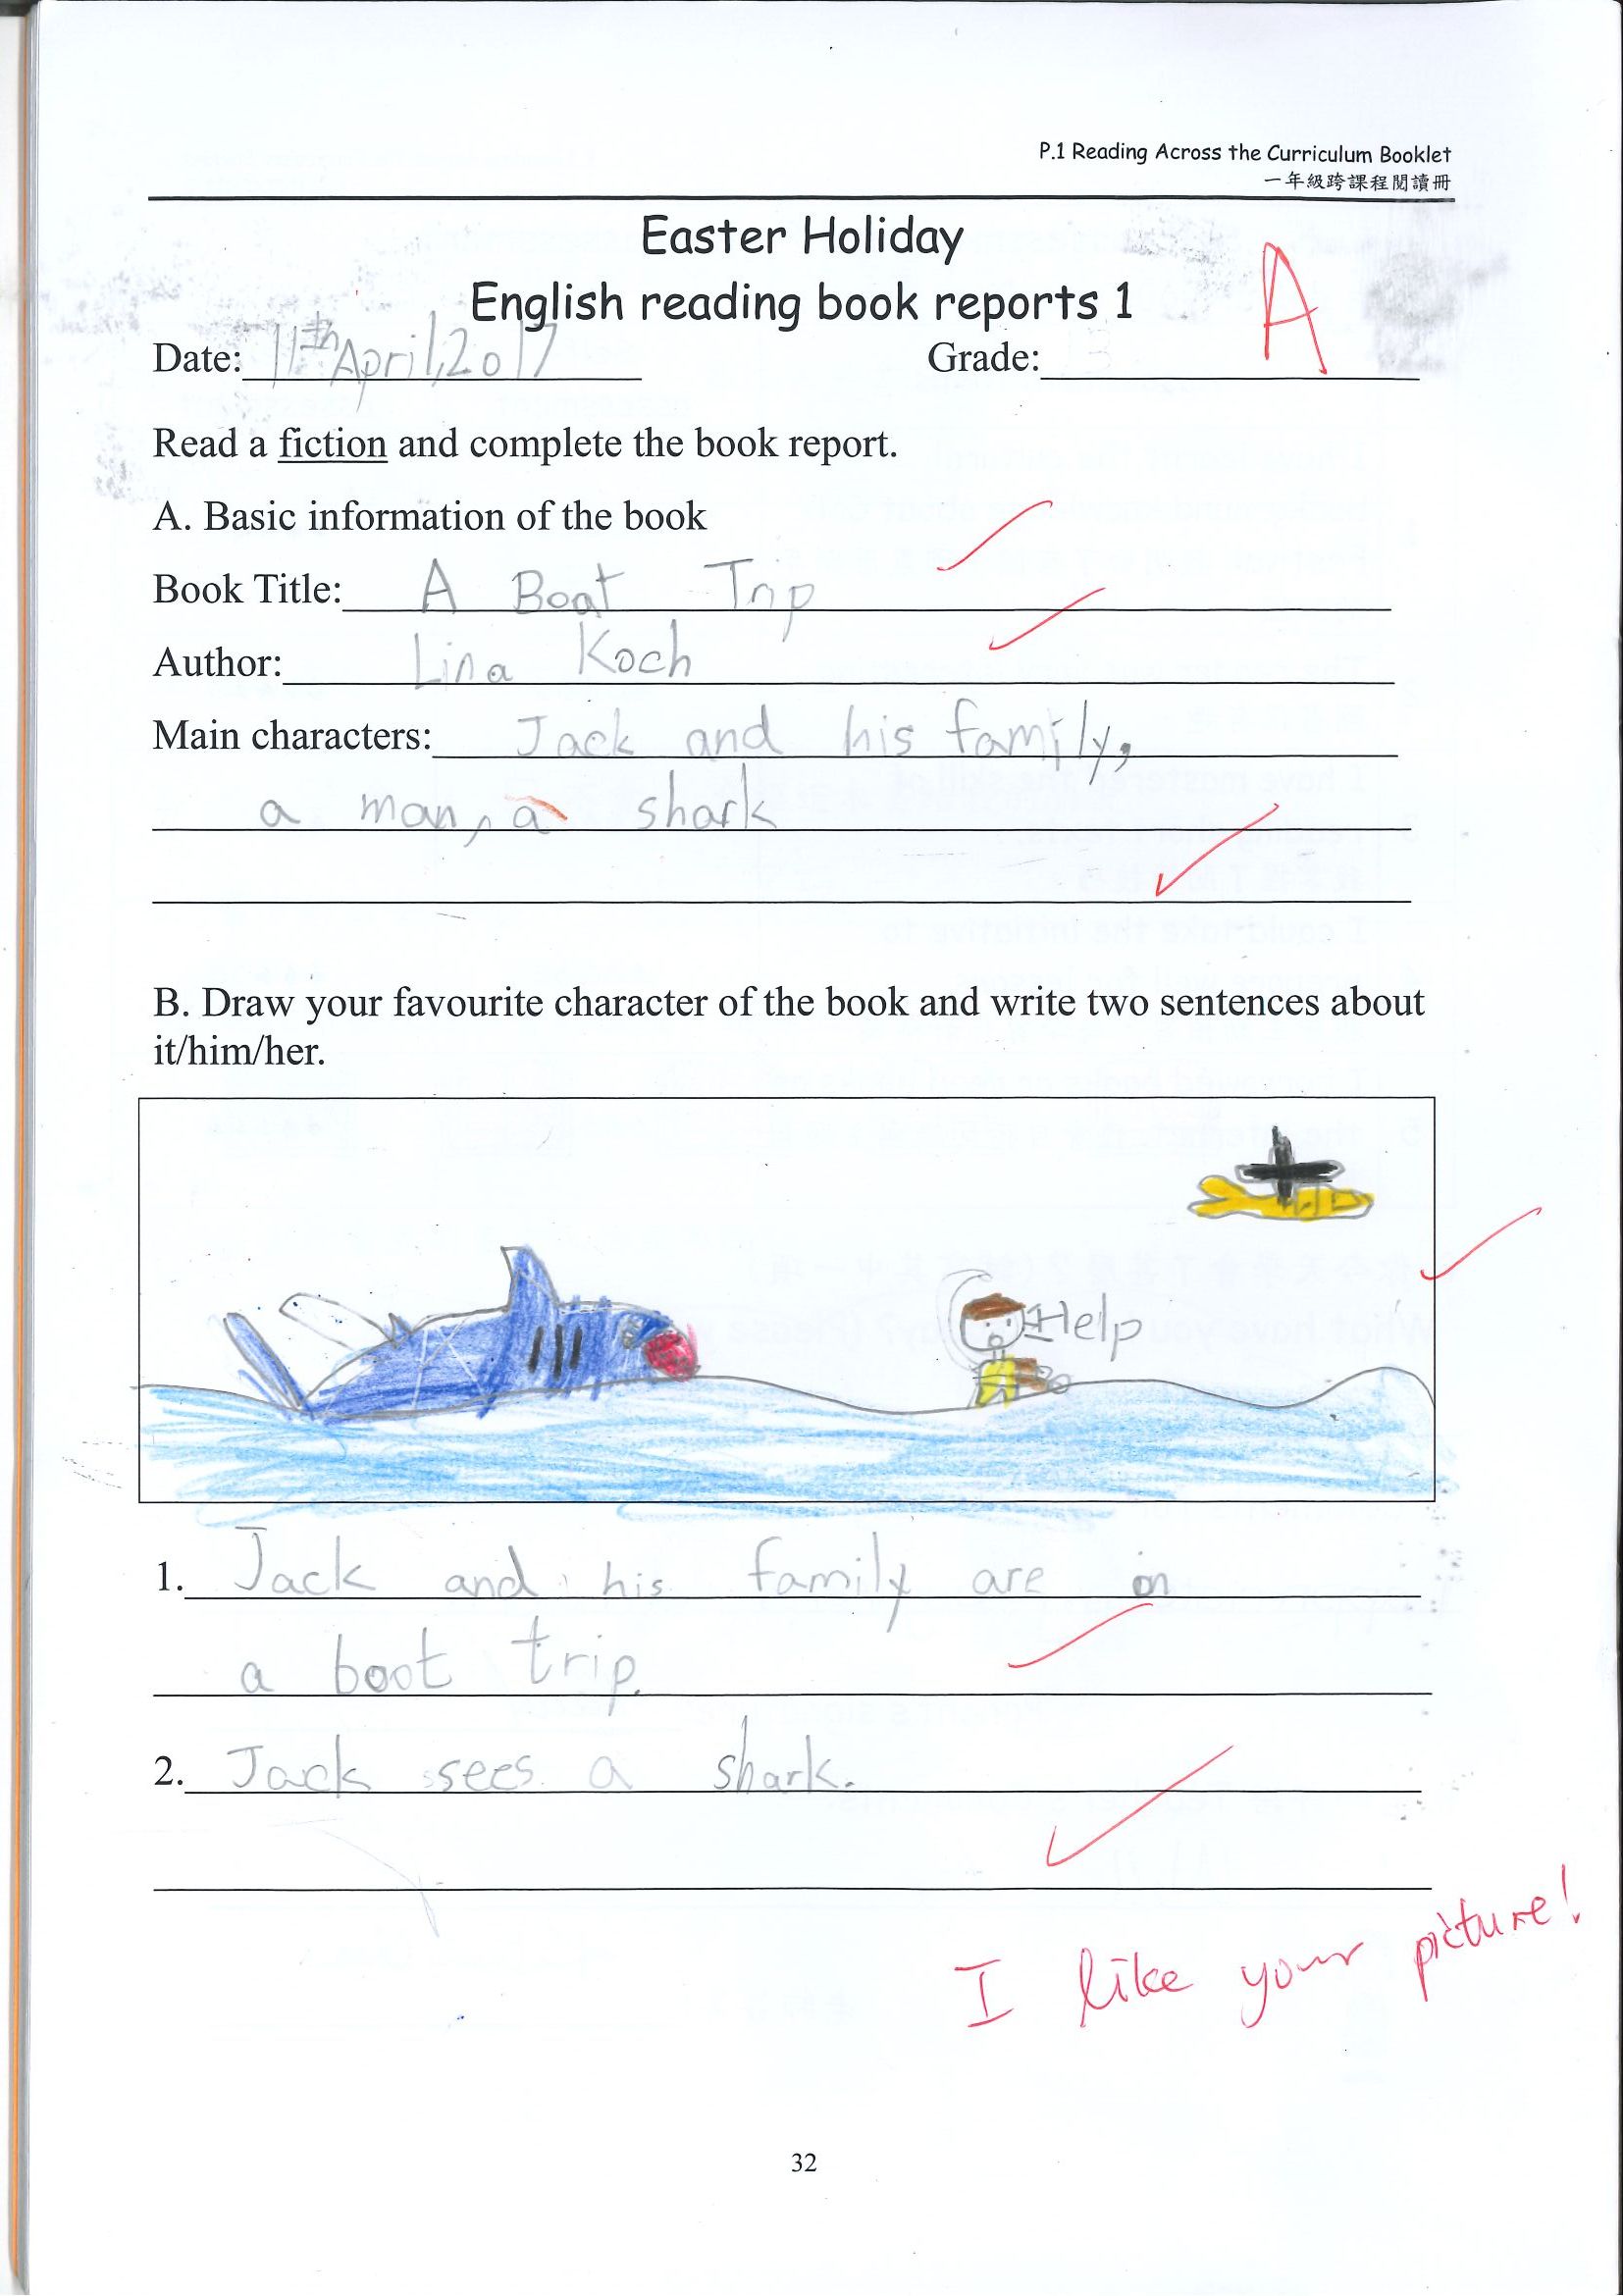 P.1 Reading Across the Curriculum Booklet
一年級跨課程閱讀冊
Easter Holiday
English reading book reports 1
A
Date: 11th April,2017 Grade:
Read a fiction and complete the book report.
A. Basic information of the book
Book Title: A Boat Trip
Author: Lina Koch
Main characters: Jack and his family,
a man, a shark
B. Draw your favourite character of the book and write two sentences about
it/him/her.
Help
1. Jack and his family are on
a boat trip.
2. Jack sees a shark.
I like your picture!
32